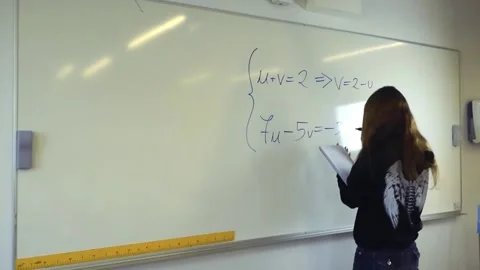 u+v=2 ⇒ v=2-u
7u-5v=-